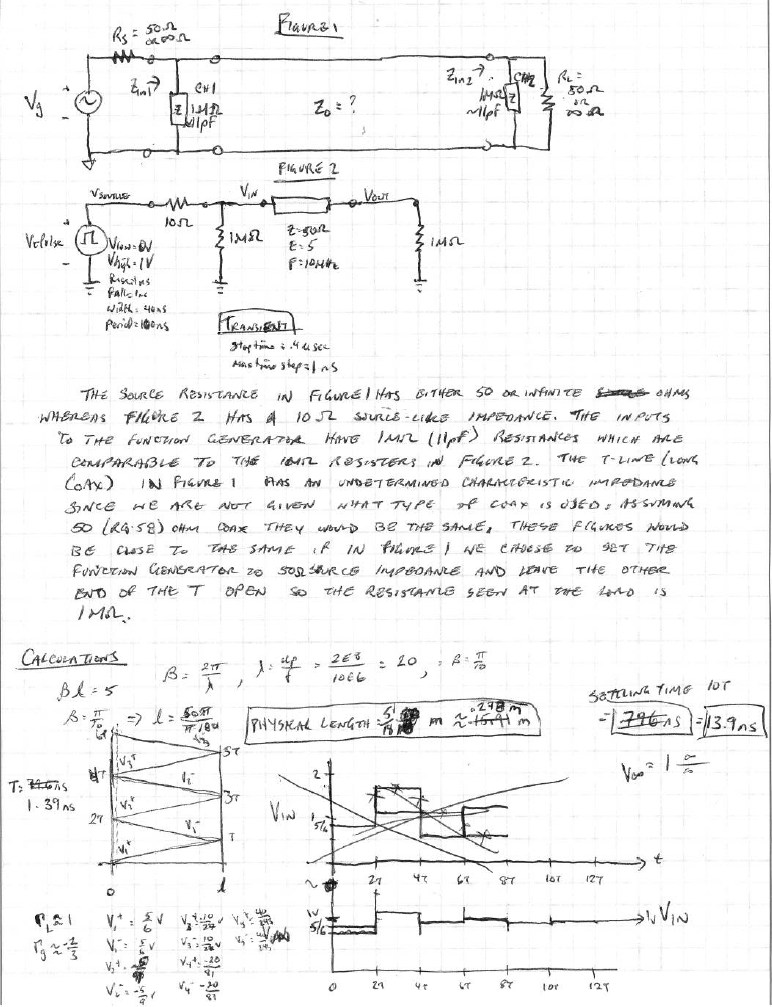 FIGURE 1
RS = 50Ω
OR ∞Ω
Zin1 →
CH1
1MΩ
~11pF
Z
Vg
+
-
Z0 = ?
Zin2 →
CH2
1MΩ
~11pF
Z
RL =
50Ω
OR
∞Ω
FIGURE 2
VSOURCE
VIN
VOUT
10Ω
Z=50Ω
E=5
F=10MHz
1MΩ
1MΩ
+
-
Vlow=0V
Vhigh=1V
Rise=1ns
Fall=1ns
Width=40ns
Period=100ns
TRANSIENT
Stop time = .4 usec
Max time step = 1 ns
THE SOURCE RESISTANCE IN FIGURE 1 HAS EITHER 50 OR INFINITE OHMS
WHEREAS FIGURE 2 HAS A 10Ω SOURCE-LIKE IMPEDANCE. THE INPUTS
TO THE FUNCTION GENERATOR HAVE 1MΩ (11pF) RESISTANCES WHICH ARE
COMPARABLE TO THE 1MΩ RESISTERS IN FIGURE 2. THE T-LINE (LONG
COAX) IN FIGURE 1 HAS AN UNDETERMINED CHARACTERISTIC IMPEDANCE
SINCE WE ARE NOT GIVEN WHAT TYPE OF COAX IS USED; ASSUMING
50 (RG-58) OHM COAX THEY WOULD BE THE SAME. THESE FIGURES WOULD
BE CLOSE TO THE SAME IF IN FIGURE 1 WE CHOOSE TO SET THE
FUNCTION GENERATOR TO 50Ω SOURCE IMPEDANCE AND LEAVE THE OTHER
END OF THE T OPEN SO THE RESISTANCE SEEN AT THE LOAD IS
1MΩ.
CALCULATIONS
β = 2π/λ , λ = = 2E8/10E6 = 20, = β = π/10
βl = 5
β = π/10 => l =
PHYSICAL LENGTH = m ≈ .278 m
SETTLING TIME 10T
= = 13.9ns
V∞ = 1
T=
1.39ns
2T
5T
3T
T
V1+
V1-
V2+
V2-
V3+
0
l
2
VIN
1
5/6
t
2T 4T 6T 8T 10T 12T
ΓL ≈ 1
Γg ≈ -2/3
V1+ = 5/6 V
V1- = 5/6 V
V2+ =
V2- = -5/9 V
V3+ = 10/27 V
V3- = 10/27 V
V4+ = -20/81
V4- = -20/81
V5+ = 40/243
1V
5/6
1V VIN
0 2T 4T 6T 8T 10T 12T